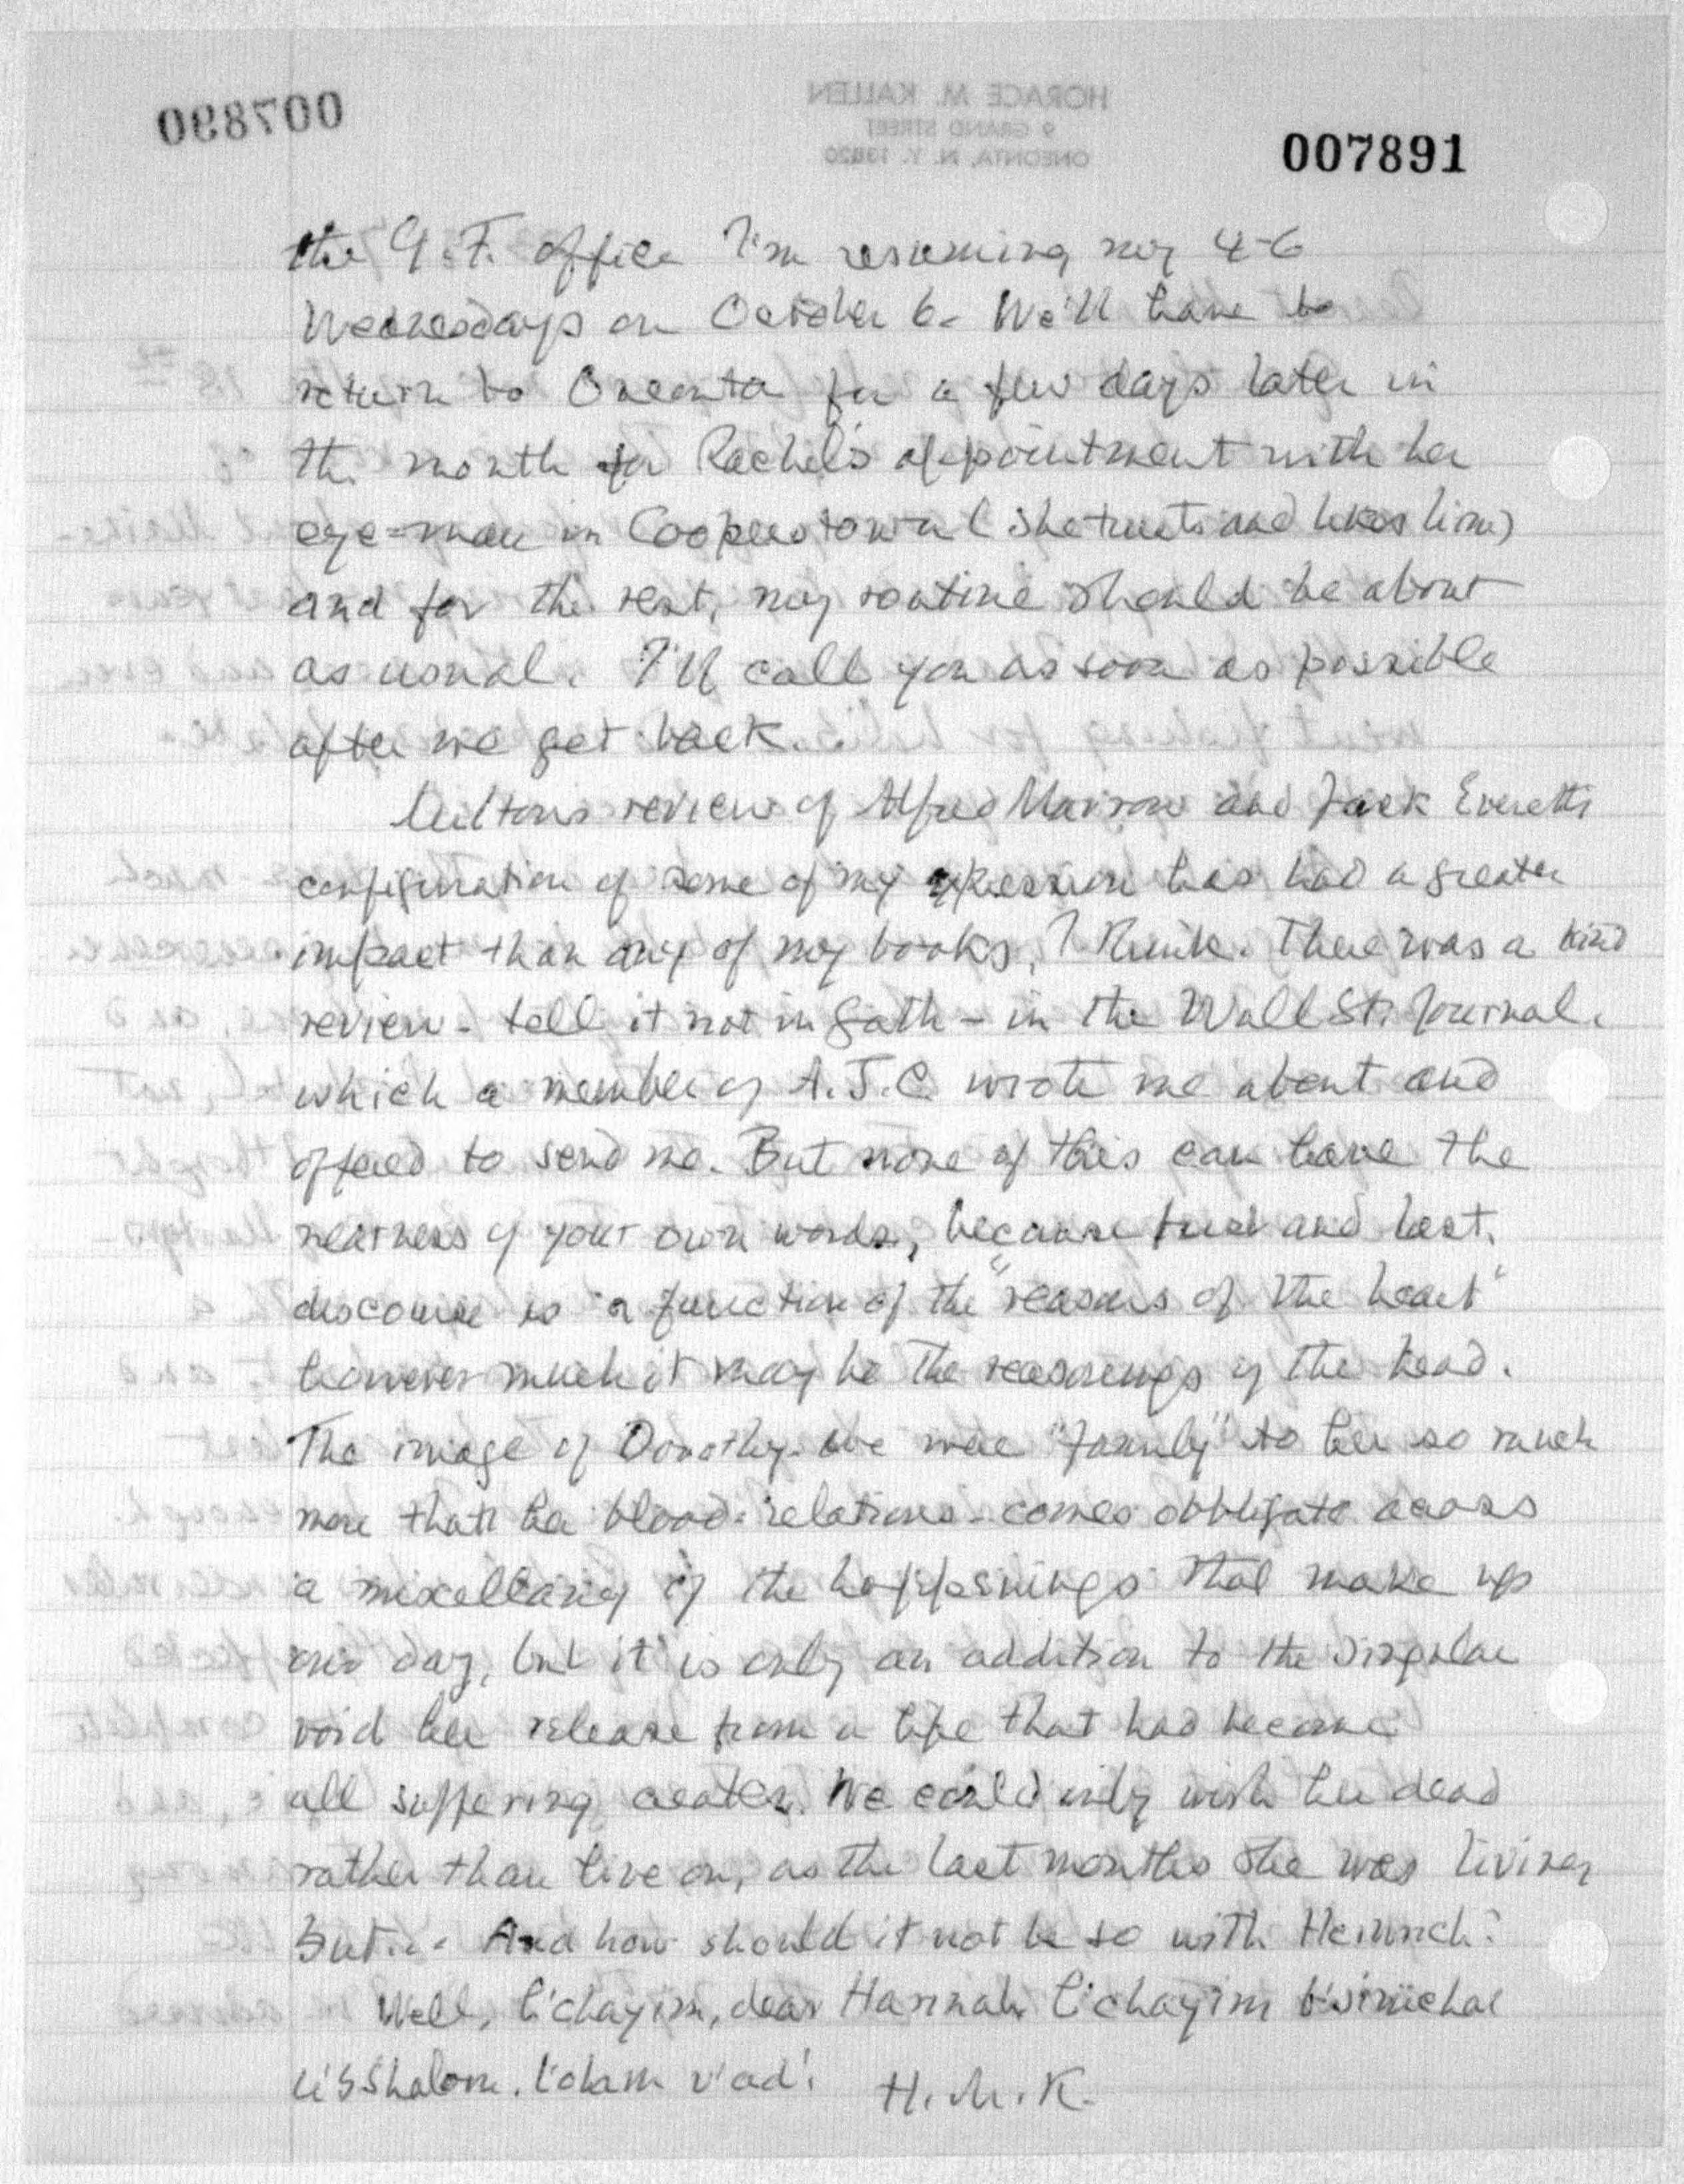 007890
HORACE M. KALLEN
9 GRAND STREET
ONEONTA, N. Y. 13820
007891
the G.F. office I'm resuming my 4-6
Wednesdays on October 6. We'll have to
return to Oneonta for a few days later in
the month for Rachel's appointment with her
eye-man in Cooperstown (she trusts and likes him)
and for the rest, my routine should be about
as usual. I'll call you as soon as possible
after we get back.
Milton's review of Alfred Marrow and Jack Everetts
configuration of some of my has had a greater
impact than any of my books, I think. There was a kind
review - tell it not in Gath - in the Wall St. Journal.
which a member of A.J.C. wrote me about and
offered to send me. But none of this can have the
nearness of your own words, because first and last,
discourse is a function of the "reasons of the heart"
however much it may be the reasonings of the head.
The image of Dorothy - we were "family" to her so much
more than her blood-relations - comes obbligato across
a miscellany of the happenings that make up
our day, but it is only an addition to the singular
void her release from a life that had become
all suffering creates. We could only wish her dead
rather than live on, as the last months she was living
but... And how should it not be so with Heinrich?
Well, l'chayim, dear Hannah l'chayim
l'olam v'ad! H.M.K.